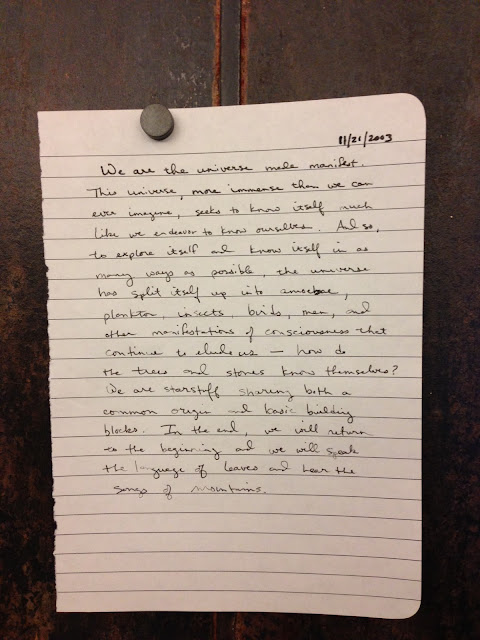 11/21/2003
We are the universe made manifest.
This universe, more immense than we can
ever imagine, seeks to know itself much
like we endeavor to know ourselves. And so,
to explore itself and know itself in as
many ways as possible, the universe
has split itself up into amoebae,
plankton, insects, birds, men, and
other manifestations of consciousness that
continue to elude us — how do
the trees and stones know themselves?
We are starstuff sharing both a
common origin and basic building
blocks. In the end, we will return
to the beginning and we will speak
the language of leaves and hear the
songs of mountains.